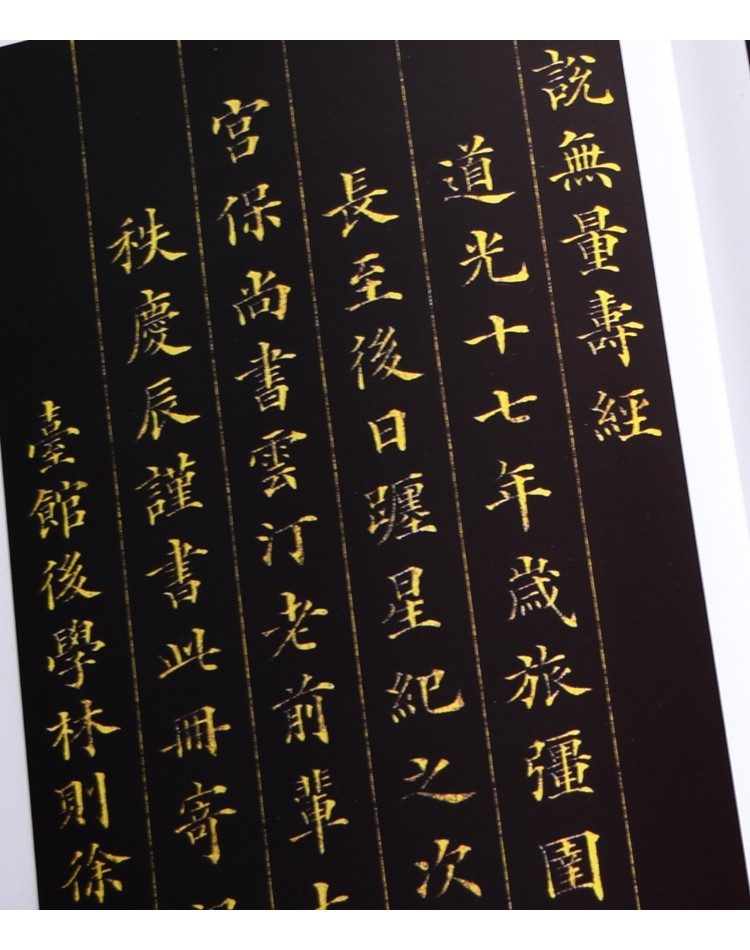 說無量壽經
道光十七年歲旅彊圉
長至後日躔星紀之次
宮保尚書雲汀老前輩
秩慶辰謹書此冊寄
臺館後學林則徐